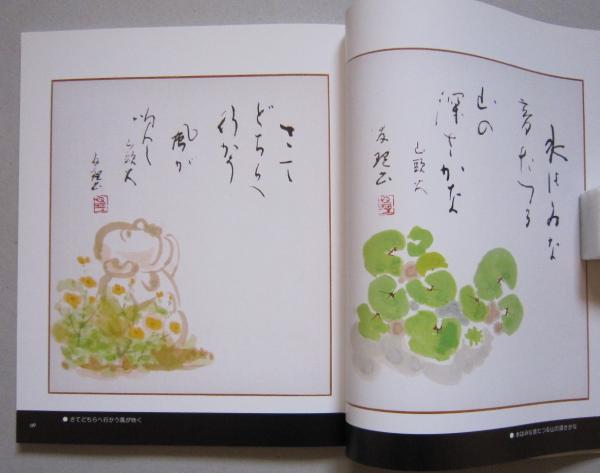 さて
どちらへ
行かう
風が
吹く
山頭火
水はみな
音たつる
山の
深さかな
山頭火
● さてどちらへ行かう風が吹く
● 水はみな音たつる山の深さかな